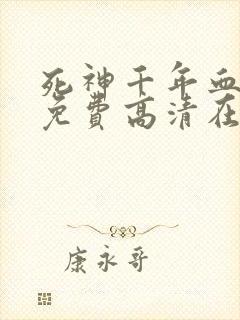 死神千年血
免费高清在
康永哥